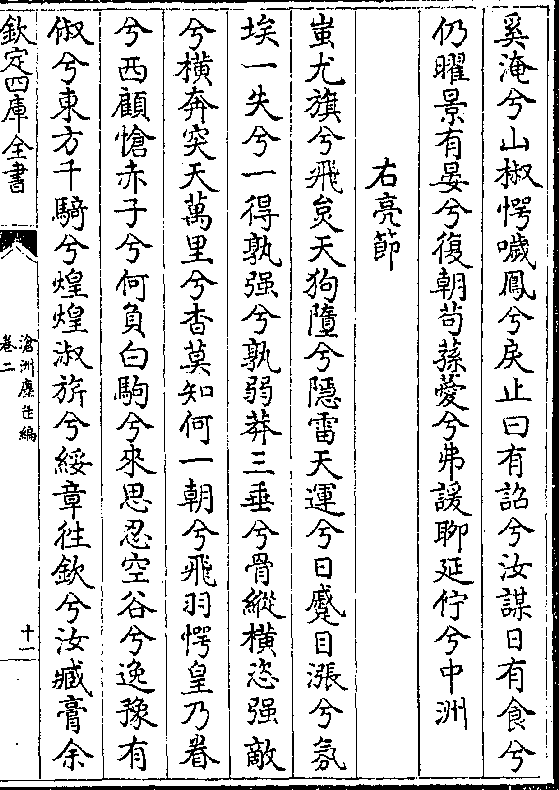 奚淹兮山椒愕噦鳳兮戾止曰有詔兮汝謀日有食兮
仍曜景有晏兮復朝茍蓀薆兮弗諼聊延佇兮中洲
右亮節
蚩尤旗兮飛炱天狗墮兮隱雷天運兮日蹙目漲兮氛
埃一失兮一得孰强兮孰弱莽三垂兮骨縱橫恣强敵
兮橫奔突天萬里兮杳莫知何一朝兮飛羽愕皇乃眷
兮西顧愴赤子兮何負白駒兮來思忍空谷兮逸豫有
俶兮東方千騎兮煌煌淑旂兮綏章徃欽兮汝臧膏余
欽定四庫全書
滄洲塵缶編
卷二
十一